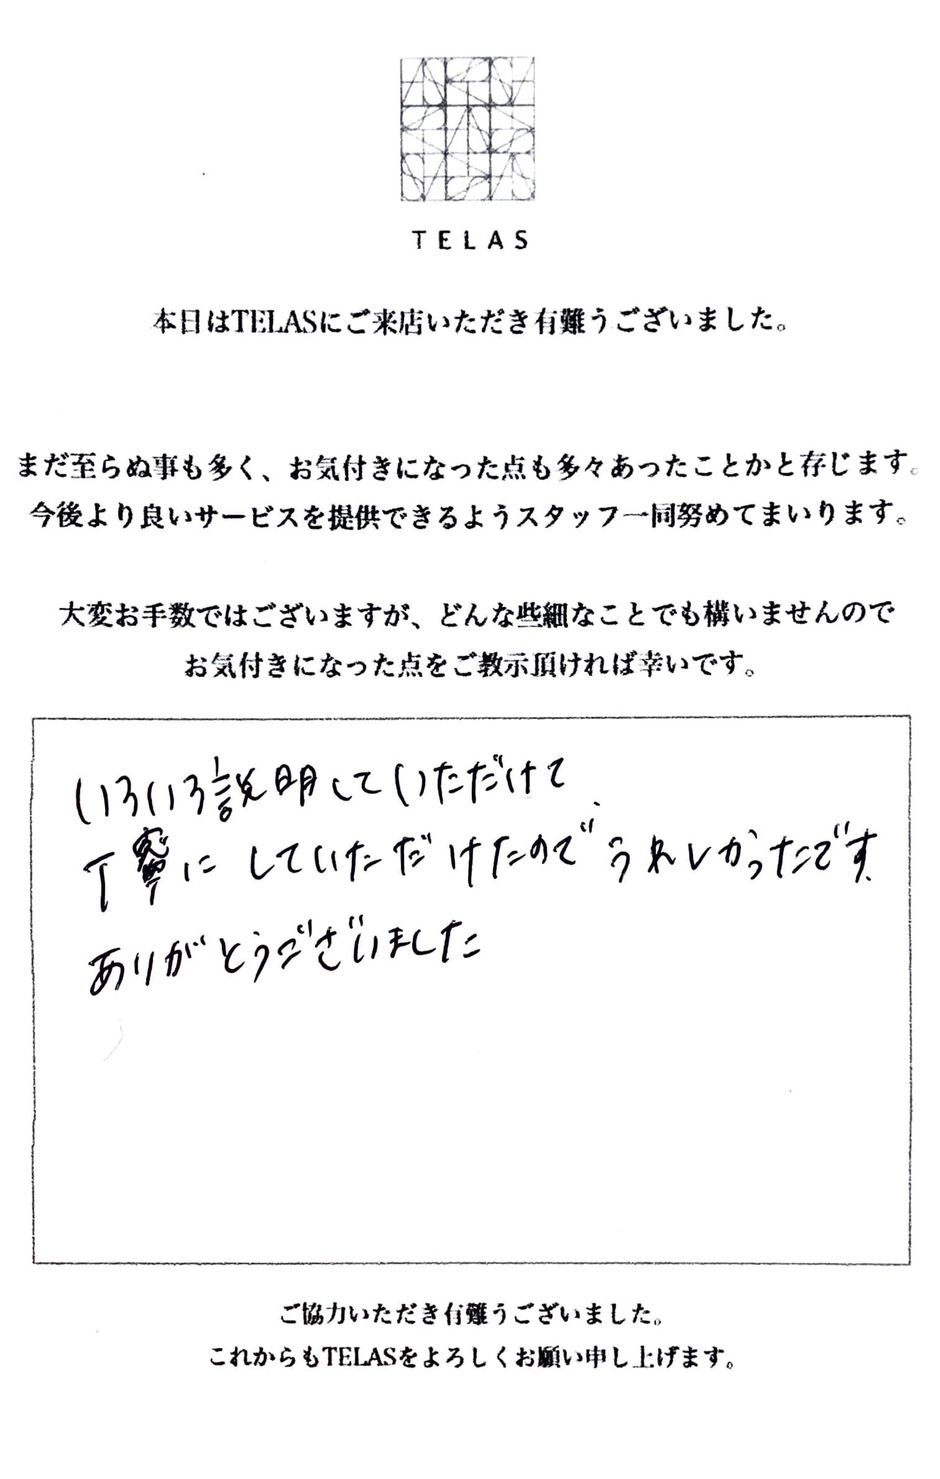 TELAS
本日はTELASにご来店いただき有難うございました。
まだ至らぬ事も多く、お気付きになった点も多々あったことかと存じます。
今後より良いサービスを提供できるようスタッフ一同努めてまいります。
大変お手数ではございますが、どんな些細なことでも構いませんので
お気付きになった点をご教示頂ければ幸いです。
いろいろ説明していただけて、
丁寧にしていただけたのでうれしかったです。
ありがとうございました
ご協力いただき有難うございました。
これからもTELASをよろしくお願い申し上げます。